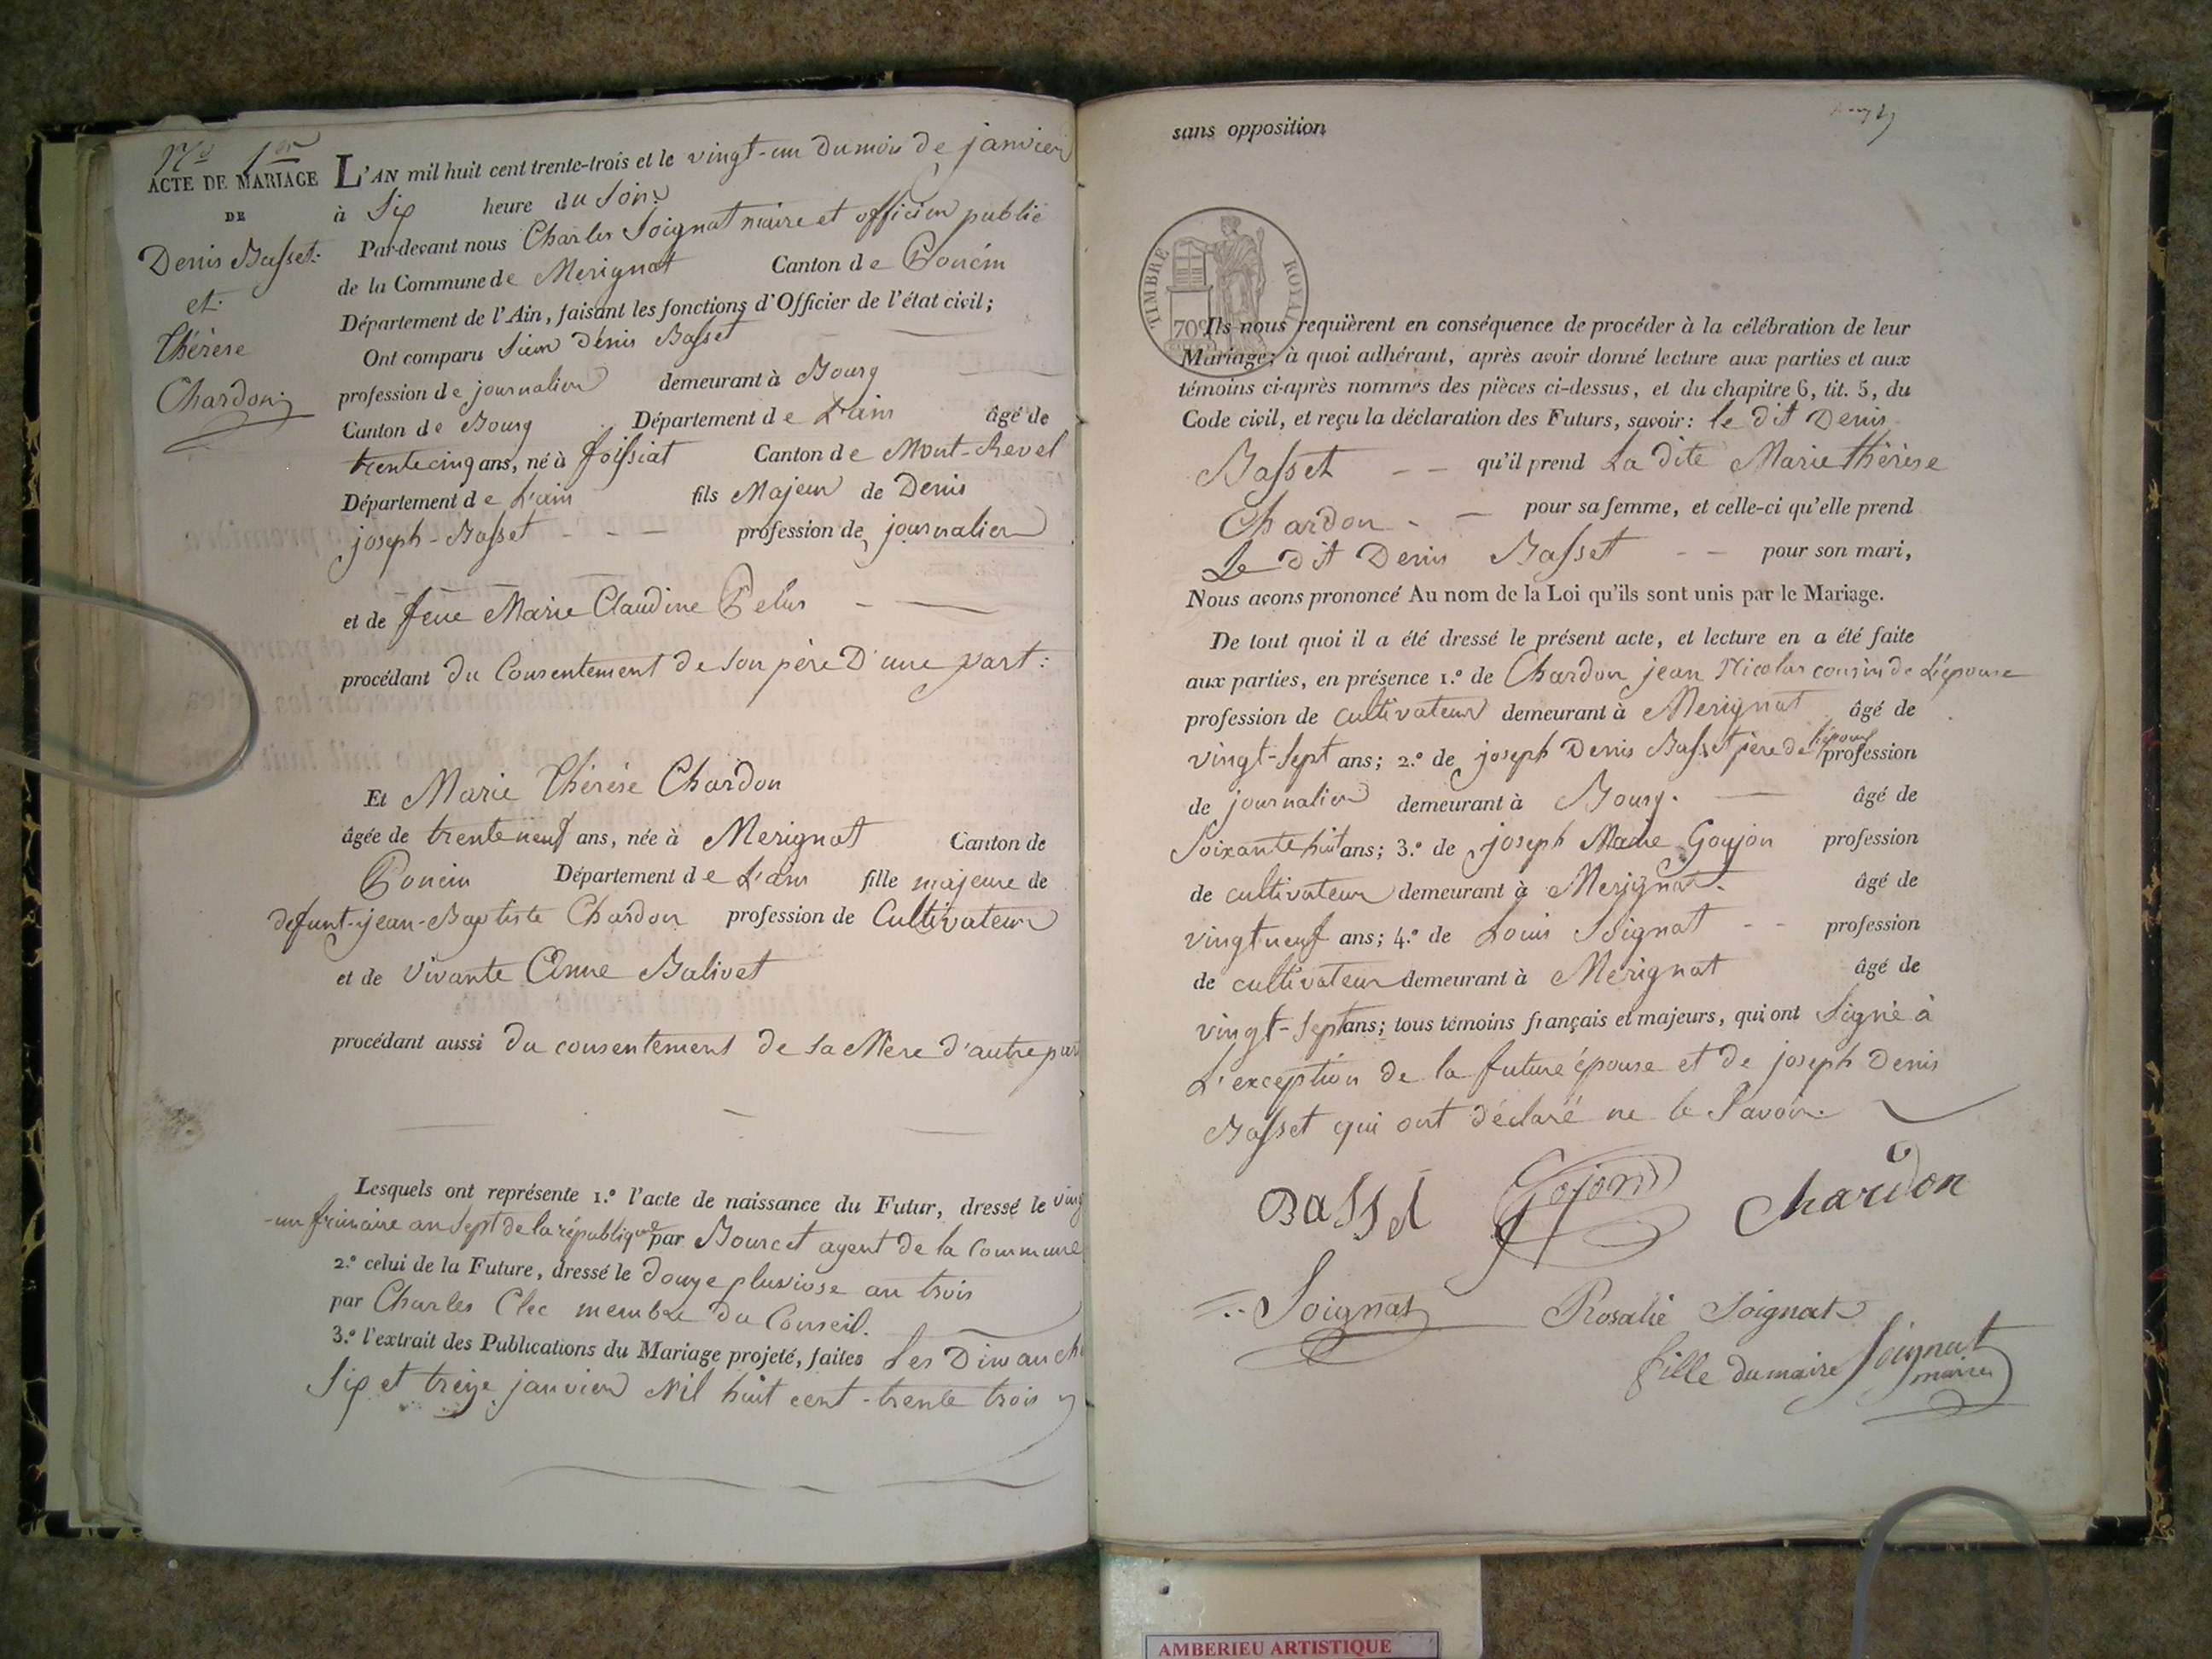 N.o 1er
ACTE DE MARIAGE
DE
Denis Basset
et
Thérèse
Chardon
L'AN mil huit cent trente-trois et le vingt-un du mois de janvier
à Six heure du Soir
Par-devant nous Charles Soignat maire et officier public
de la Commune de Merignat Canton de Poncin
Département de l'Ain, faisant les fonctions d'Officier de l'état civil;
Ont comparu Sieur Dénis Basset
profession de journalier demeurant à Bourg
Canton de Bourg Département de L'ain âgé de
trente cinq ans, né à foissiat Canton de Mont-Revel
Département de L'ain fils Majeur de Denis
joseph-Basset - - - profession de journalier
et de feue Marie Claudine Pelus
procédant du Consentement de son père D'une part:
Et Marie Thérèse Chardon
âgée de trente neuf ans, née à Merignat Canton de
Poncin Département de L'ain fille majeure de
defunt-jean-Baptiste Chardon profession de Cultivateur
et de vivante Anne Balivet
procédant aussi du consentement de sa Mère d'autre part
Lesquels ont représente 1.° l'acte de naissance du Futur, dressé le ving
-un frimaire an Sept de la république par Bourcet agent de la Commune
2.° celui de la Future, dressé le douze pluviose an trois
par Charles Clec membre du Conseil.
3.° l'extrait des Publications du Mariage projeté, faites Les Dimanche
Six et treize janvier Mil huit cent-trente trois
sans opposition
TIMBRE ROYAL
70c
Ils nous requièrent en conséquence de procéder à la célébration de leur
Mariage; à quoi adhérant, après avoir donné lecture aux parties et aux
témoins ci-après nommés des pièces ci-dessus, et du chapitre 6, tit. 5, du
Code civil, et reçu la déclaration des Futurs, savoir: le dit Denis
Basset - - qu'il prend La dite Marie thérèse
Chardon - - pour sa femme, et celle-ci qu'elle prend
Le dit Denis Basset - - pour son mari,
Nous avons prononcé Au nom de la Loi qu'ils sont unis par le Mariage.
De tout quoi il a été dressé le présent acte, et lecture en a été faite
aux parties, en présence 1.° de Chardon jean Nicolas cousin de L'épouse
profession de cultivateur demeurant à Merignat âgé de
vingt-Sept ans; 2.° de joseph Denis Basset père de l'époux profession
de journalier demeurant à Bourg. âgé de
Soixante huit ans; 3.° de joseph Marie Goujon profession
de cultivateur demeurant à Merignat. âgé de
vingt neuf ans; 4.° de Louis Soignat - - profession
de cultivateur demeurant à Merignat âgé de
vingt-Sept ans; tous témoins français et majeurs, qui ont Signé à
L'exception de la future épouse et de joseph Denis
Basset qui ont déclaré ne le Savoir.
Basset Gojon chardon
Soignat Rosalie Soignat
fille du maire Soignat
maire
AMBERIEU ARTISTIQUE